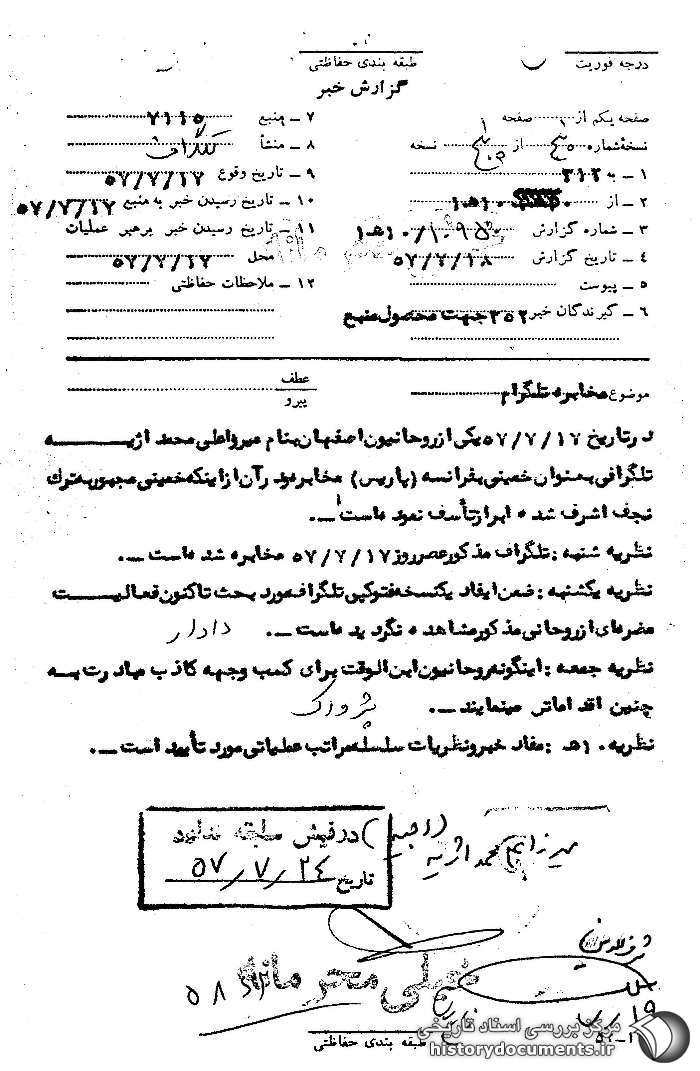 درجه فوریت
طبقه بندی حفاظتی
گزارش خبر
صفحه یکم از ۱ صفحه ۱
نسخه شماره پنج از پنج نسخه
۱ ــ به ۳۱۲
۲ ــ از ۱۰ه‍۱
۳ ــ شماره گزارش ۱۰ه‍۱/
۴ ــ تاریخ گزارش ۵۷/۷/۱۸
۵ ــ پیوست
۶ ــ گیرندگان خبر ۳۵۲ جهت محصول منبع
۷ ــ منبع ۷۱۱۵
۸ ــ منشأ تلگراف
۹ ــ تاریخ وقوع ۵۷/۷/۱۷
۱۰ ــ تاریخ رسیدن خبر به منبع ۵۷/۷/۱۷
۱۱ ــ تاریخ رسیدن خبر برهبر عملیات
محل ۵۷/۷/۱۷
۱۲ ــ ملاحظات حفاظتی
موضوع مخابره تلگرام
عطف
پیرو
در تاریخ ۵۷/۷/۱۷ یکی از روحانیون اصفهان بنام میرزا علی محمد اژیه
تلگرافی بعنوان خمینی بفرانسه (پاریس) مخابره و در آن از اینکه خمینی مجبور به ترک
نجف اشرف شده ابراز تأسف نموده است ــ.
نظریه شنبه : تلگراف مذکور عصر روز ۵۷/۷/۱۷ مخابره شده است ــ.
نظریه یکشنبه : ضمن ایفاد یکنسخه فتوکپی تلگراف مورد بحث تاکنون فعالیت
مضره‌ای از روحانی مذکور مشاهده نگردیده است ــ. دادار
نظریه جمعه : اینگونه روحانیون ابن الوقت برای کسب وجهه کاذب مبادرت به
چنین اقداماتی مینمایند ــ. پژواک
نظریه ۱۰ه‍ : مفاد خبر و نظریات سلسله مراتب عملیاتی مورد تأیید است ــ.
میرزا محمد اژیه
در فیش سابقه ندارد
تاریخ ۵۷/۷/۲۴
خیلی محرمانه
۵۸
طبقه بندی حفاظتی
مرکز بررسی اسناد تاریخی
historydocuments.ir